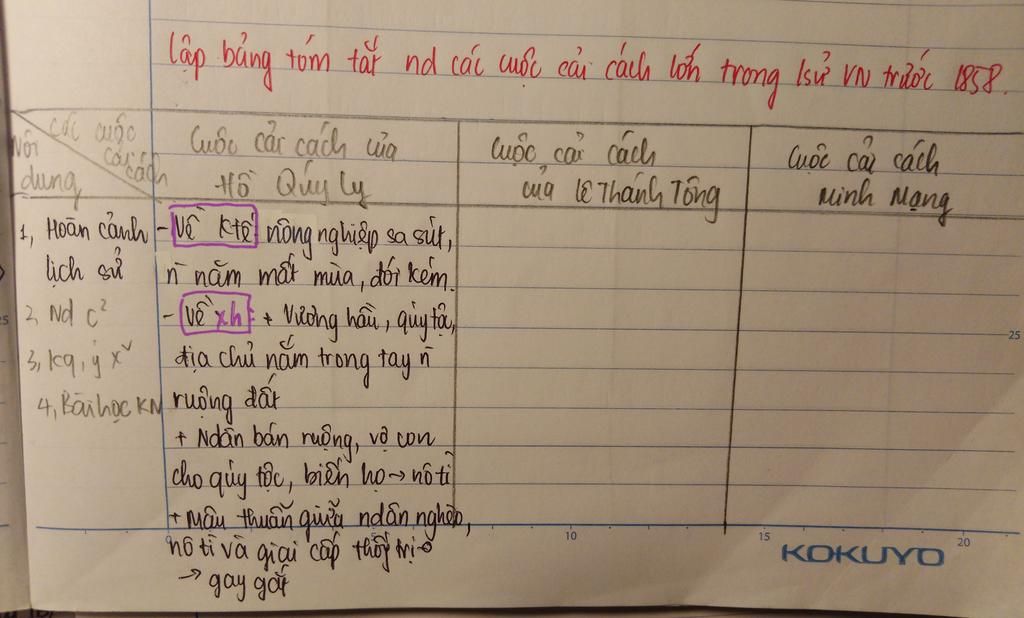 lập bảng tóm tắt nd các cuộc cải cách lớn trong lsử VN trước 1858.
Các cuộc cải cách
Nội dung
Cuộc cải cách của Hồ Quý Ly
Cuộc cải cách của Lê Thánh Tông
Cuộc cải cách Minh Mạng
1, Hoàn cảnh lịch sử
2, Nd c²
3, Kq, ý x^v
4, Bài học KN
- Về Ktế: nông nghiệp sa sút,
n̄ năm mất mùa, đói kém.
- Về xh: + Vương hầu, qúy tộc,
địa chủ nắm trong tay n̄
ruộng đất
+ Ndân bán ruộng, vợ con
cho qúy tộc, biến họ → nô tì
+ Mâu thuẫn giữa ndân nghèo,
nô tì và giai cấp thống trị
→ gay gắt
25
25
10
15
20
KOKUYO